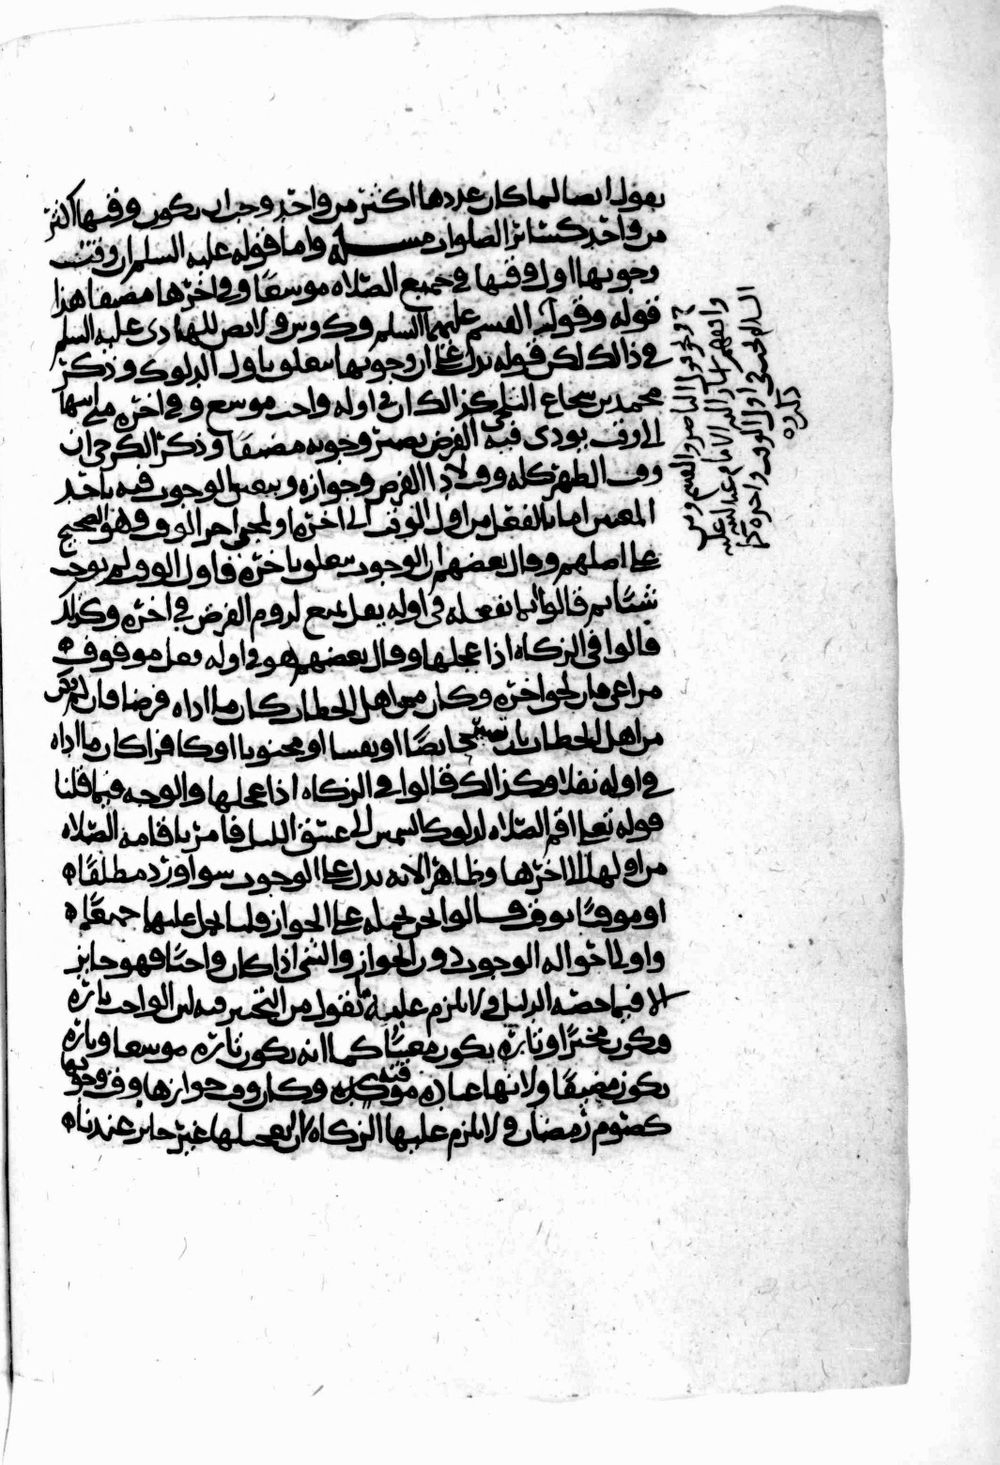 يقول ايضا لما كان عددها اكثر من واحد وجب ان يكون وقتها اكثر
من واحد كسائر الصلوات مسلة واما قوله عليه السلم ان وقت
وجوبها اول وقتها في جميع الصلاه موسعا وفي اخرها مضيقا هذا
قوله وقول القسم عليهما السلم وولا نص للهادي عليه السلم
في ذالك لكن قوله يدل على ان وجوبها متعلق باول الدلوك وذكر
محمد بن شجاع الثلجي كذالك ان في اوله واجب موسع وفي اخره
الى وقت يودى فيه الفرض يصير وجوبه مضيقا وذكر الكرخي ان
وقت الظهر كله وقت لاداء الفرض وجوازه ويتعين الوجوب فيه باحد
المعنيين اما بالفعل من اول الوقت الى اخره او لمجي اخر الوقت وهو الصحيح
على اصلهم وقال بعضهم ان الوجوب متعلق باخره فاول الوقت لم يوجب
شيئا ثم قالوا لما نفعله في اوله نفل يمنع لزوم الفرض في اخره وكذلك
قالوا في الزكاه اذا عجلها وقال بعضهم هو في اوله نفل موقوف
مراعى فان لحق اخره وكان من اهل الخطاب كان ما اداه فرضا فان لم يكن
من اهل الخطاب بان تصير حايضا او نفسا او مجنونا او كافرا كان ما اداه
في اوله نفلا وكذالك قالوا في الزكاه اذا عجلها والوجه فيما قلنا
قوله تعلى اقم الصلاه لدلوك الشمس الى غسق الليل فامر باقامة الصلاه
من اولها الى اخرها وظاهر الايه يدل على الوجوب سوا ورد مطلقا
او موقتا بوقت قالوا نحن نحمله على الجواز قلنا بل عليها جميعا
واولى احواله الوجوب دون الجواز والشي اذا كان واجبا فهو جايز
الا فيما خصه الدليل ولا يلزم عليه ما نقول من التخيير فيه لان الواجب تارة
يكون مخيرا وتارة يكون معينا كما انه يكون تارة موسعا وتارة
يكون مضيقا ولانها عباده موقته وكان وقت جوازها وقت وجوبها
كصوم رمضان ولا يلزم عليها الزكاه لان تعجيلها غير جايز عندنا